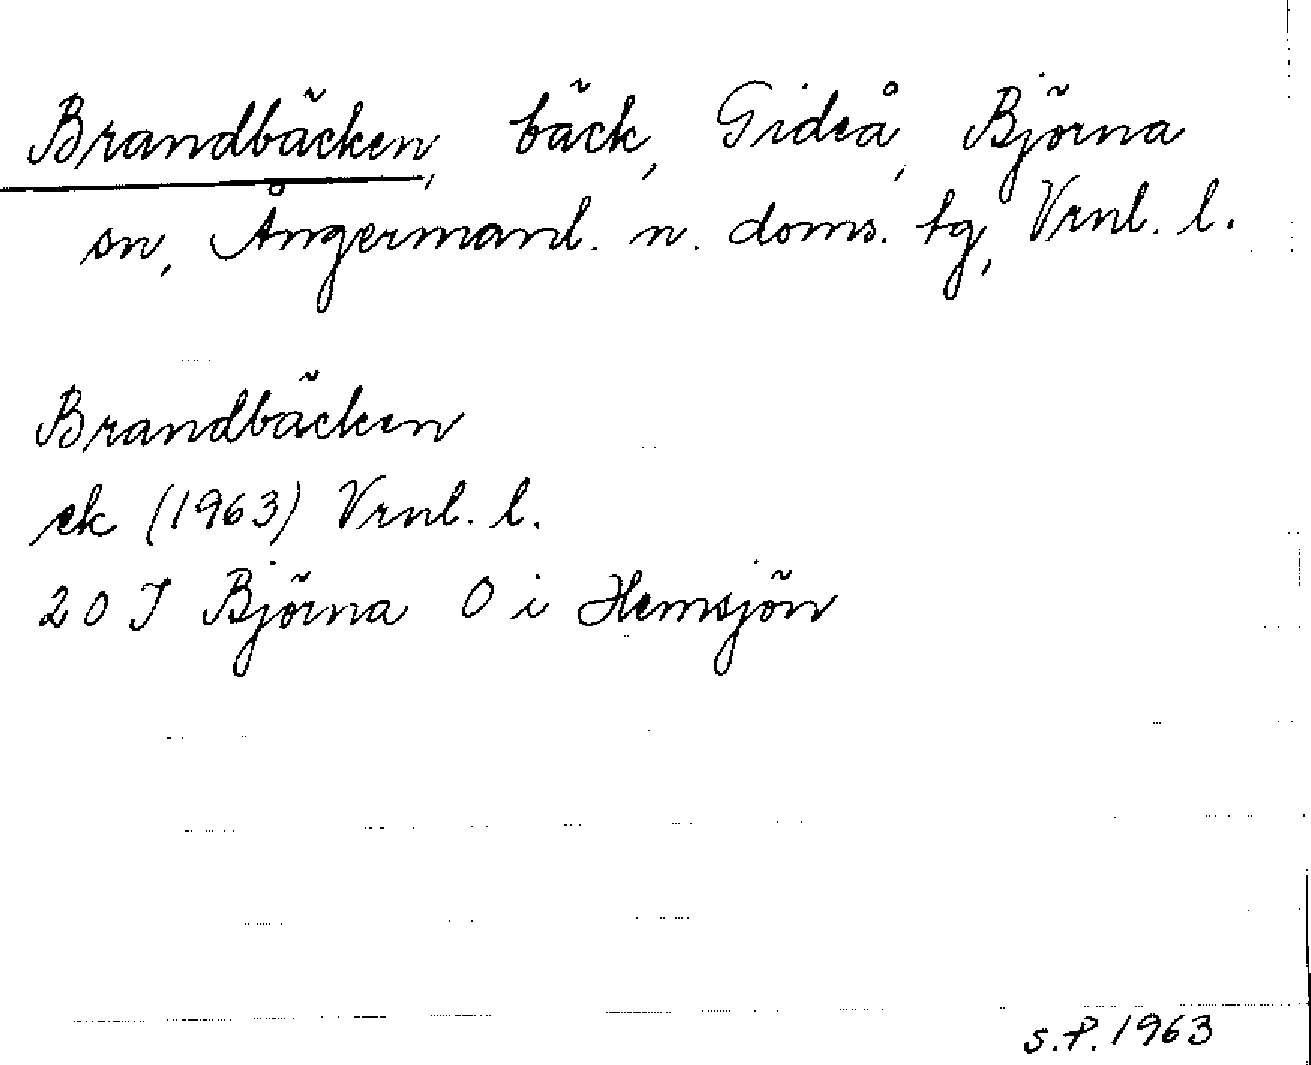 Brandbäcken, bäck, Gideå, Björna
sn, Ångermanl. n. doms. tg, Vrnl. l.
Brandbäcken
ek (1963) Vrnl. l.
20 J Björna O i Hemsjön
S.P. 1963